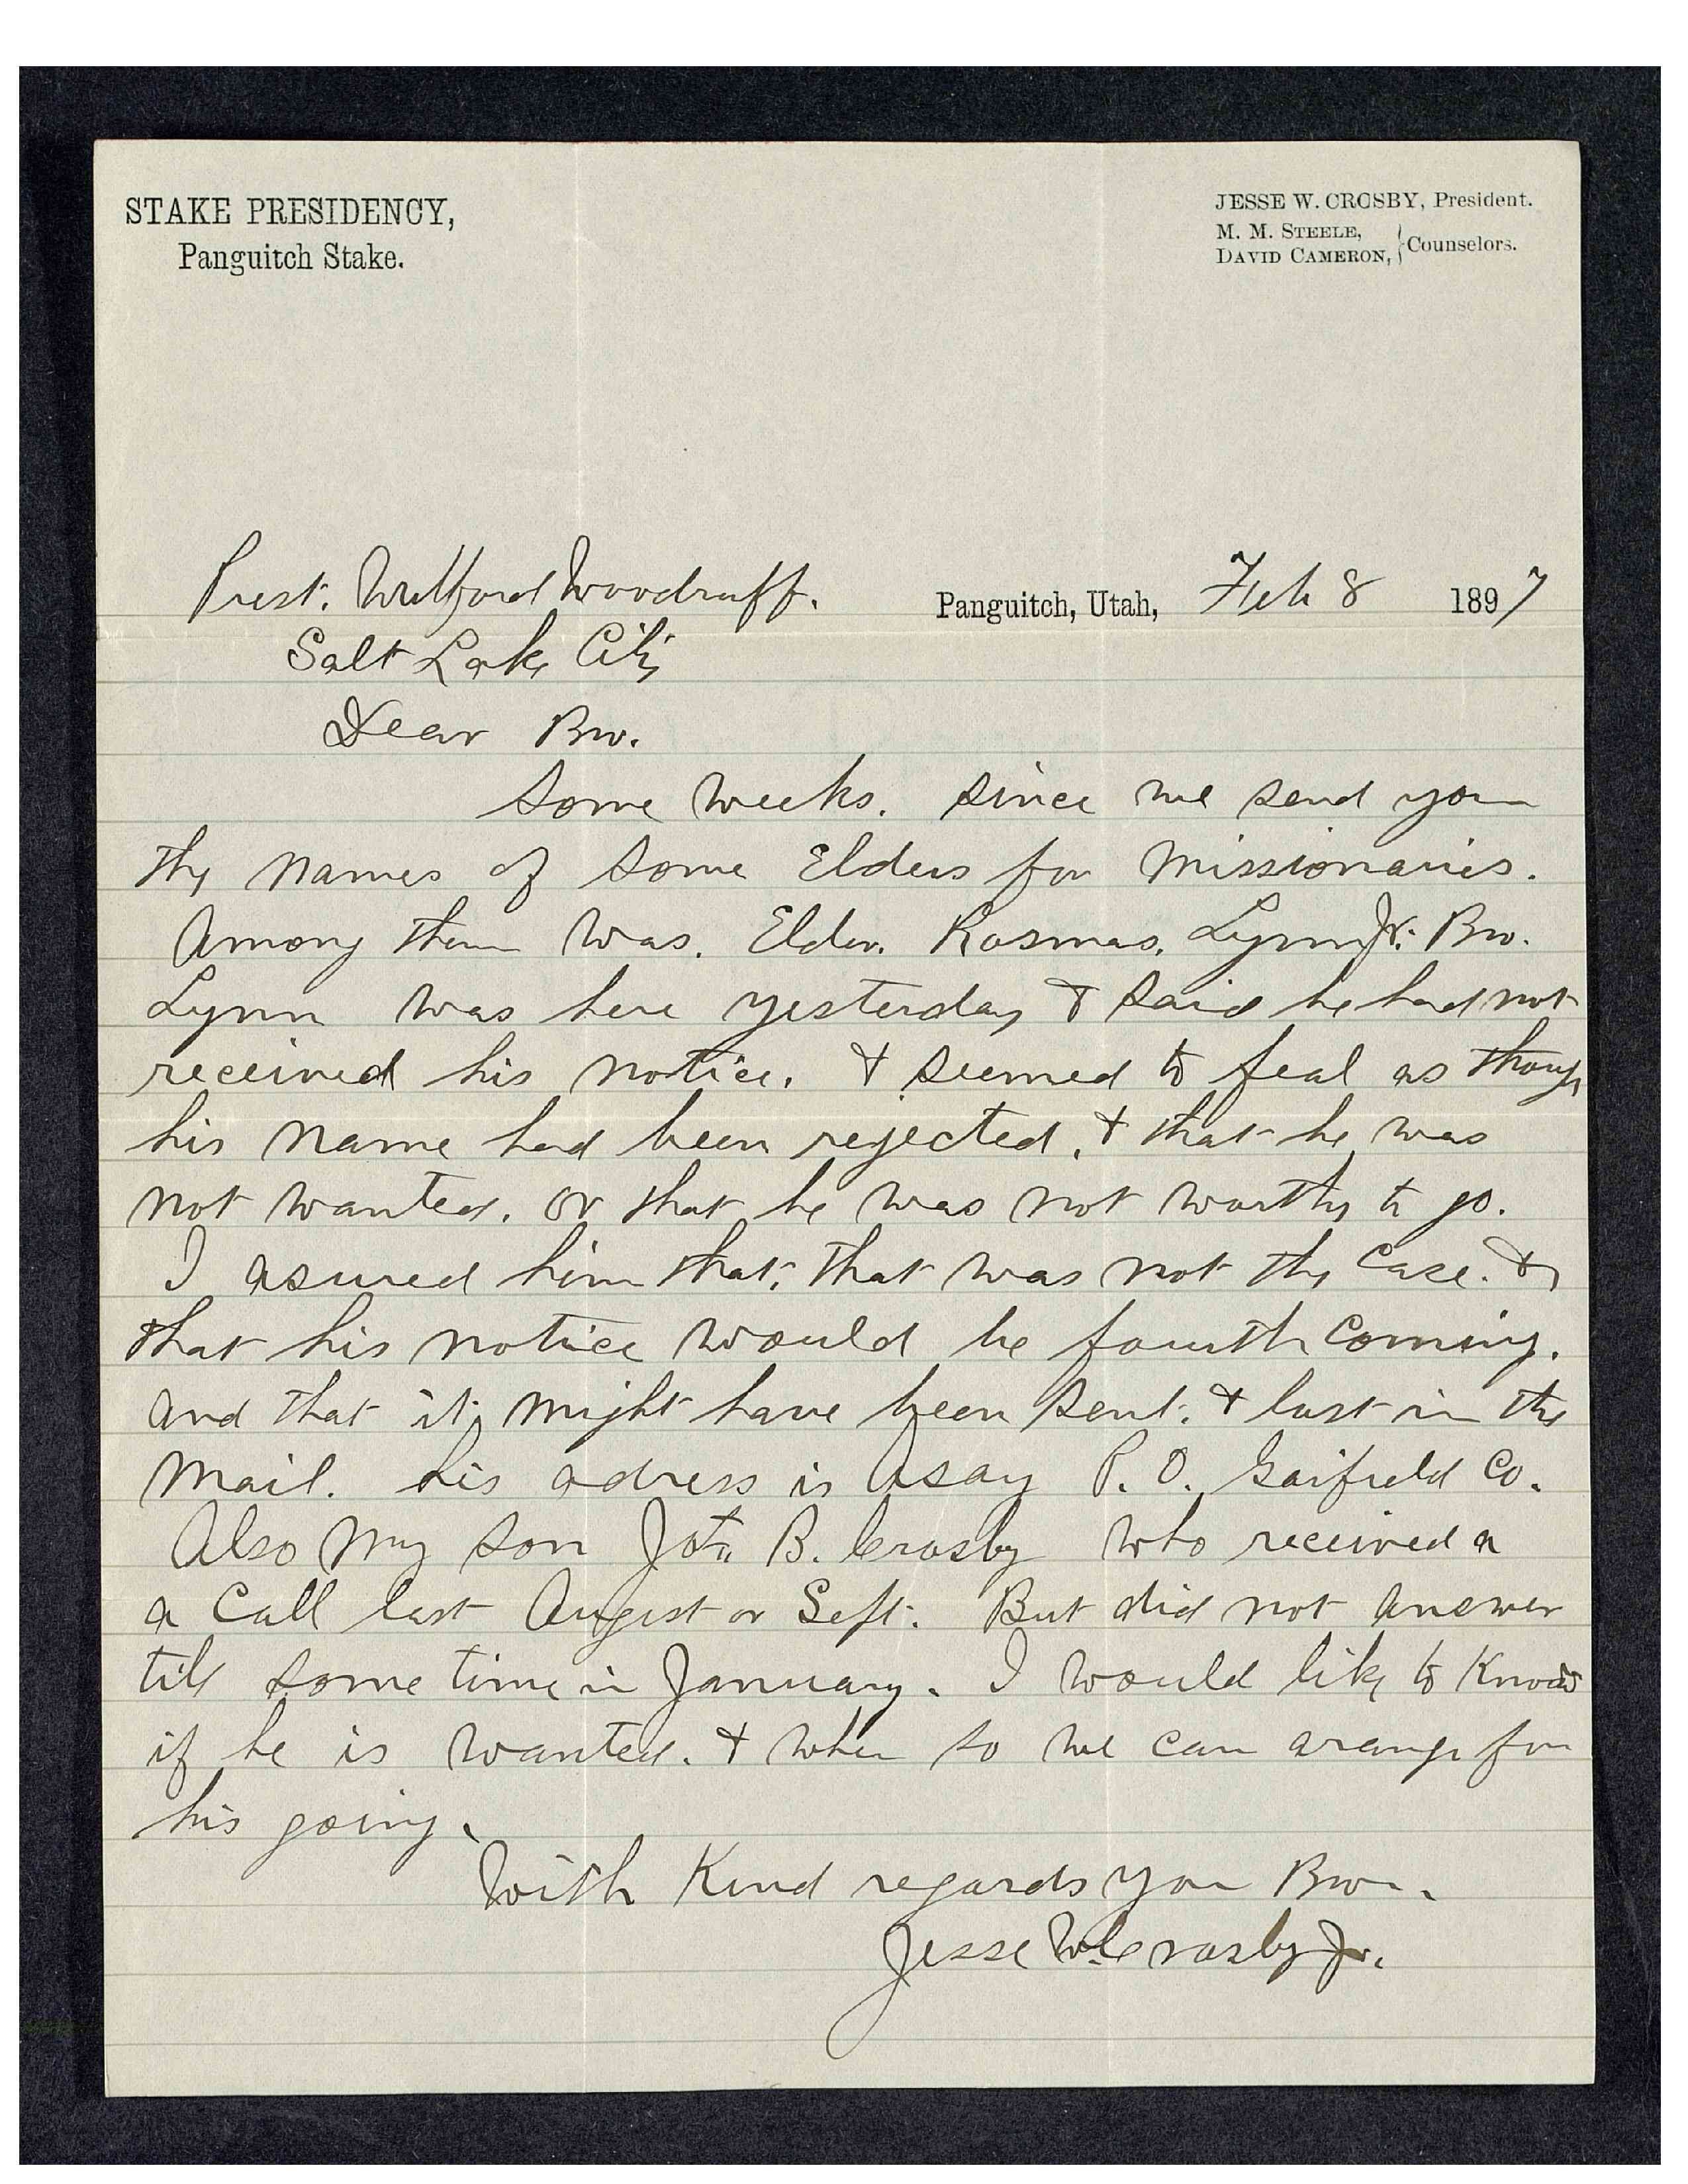 STAKE PRESIDENCY,
Panguitch Stake.
JESSE W. CROSBY, President.
M. M. STEELE,
DAVID CAMERON, } Counselors.
Prest. Wilford Woodruff.
Panguitch, Utah, Feb 8 1897
Salt Lake City
Dear Bro.
Some weeks. since we send you
the names of some Elders for Missionaries.
Among them was. Elder. Kosmas. Lynn Jr. Bro.
Lynn was here yesterday & said he had not
received his notice. & seemed to feal as though
his name had been rejected. & that he was
not wanted. or that he was not worthy to go.
I asured him that. that was not the case. &
that his notice would be fourth coming.
and that it might have been sent. & lost in the
mail. his adress is Asay P. O. Garfield Co.
Also my son B. Crosby who received a
a Call last Augest or Sept. But did not answer
till some time in January. I would like to Know
if he is wanted. & when so we can arange for
his going.
With Kind regards your Bro.
Jesse W. Crosby Jr.